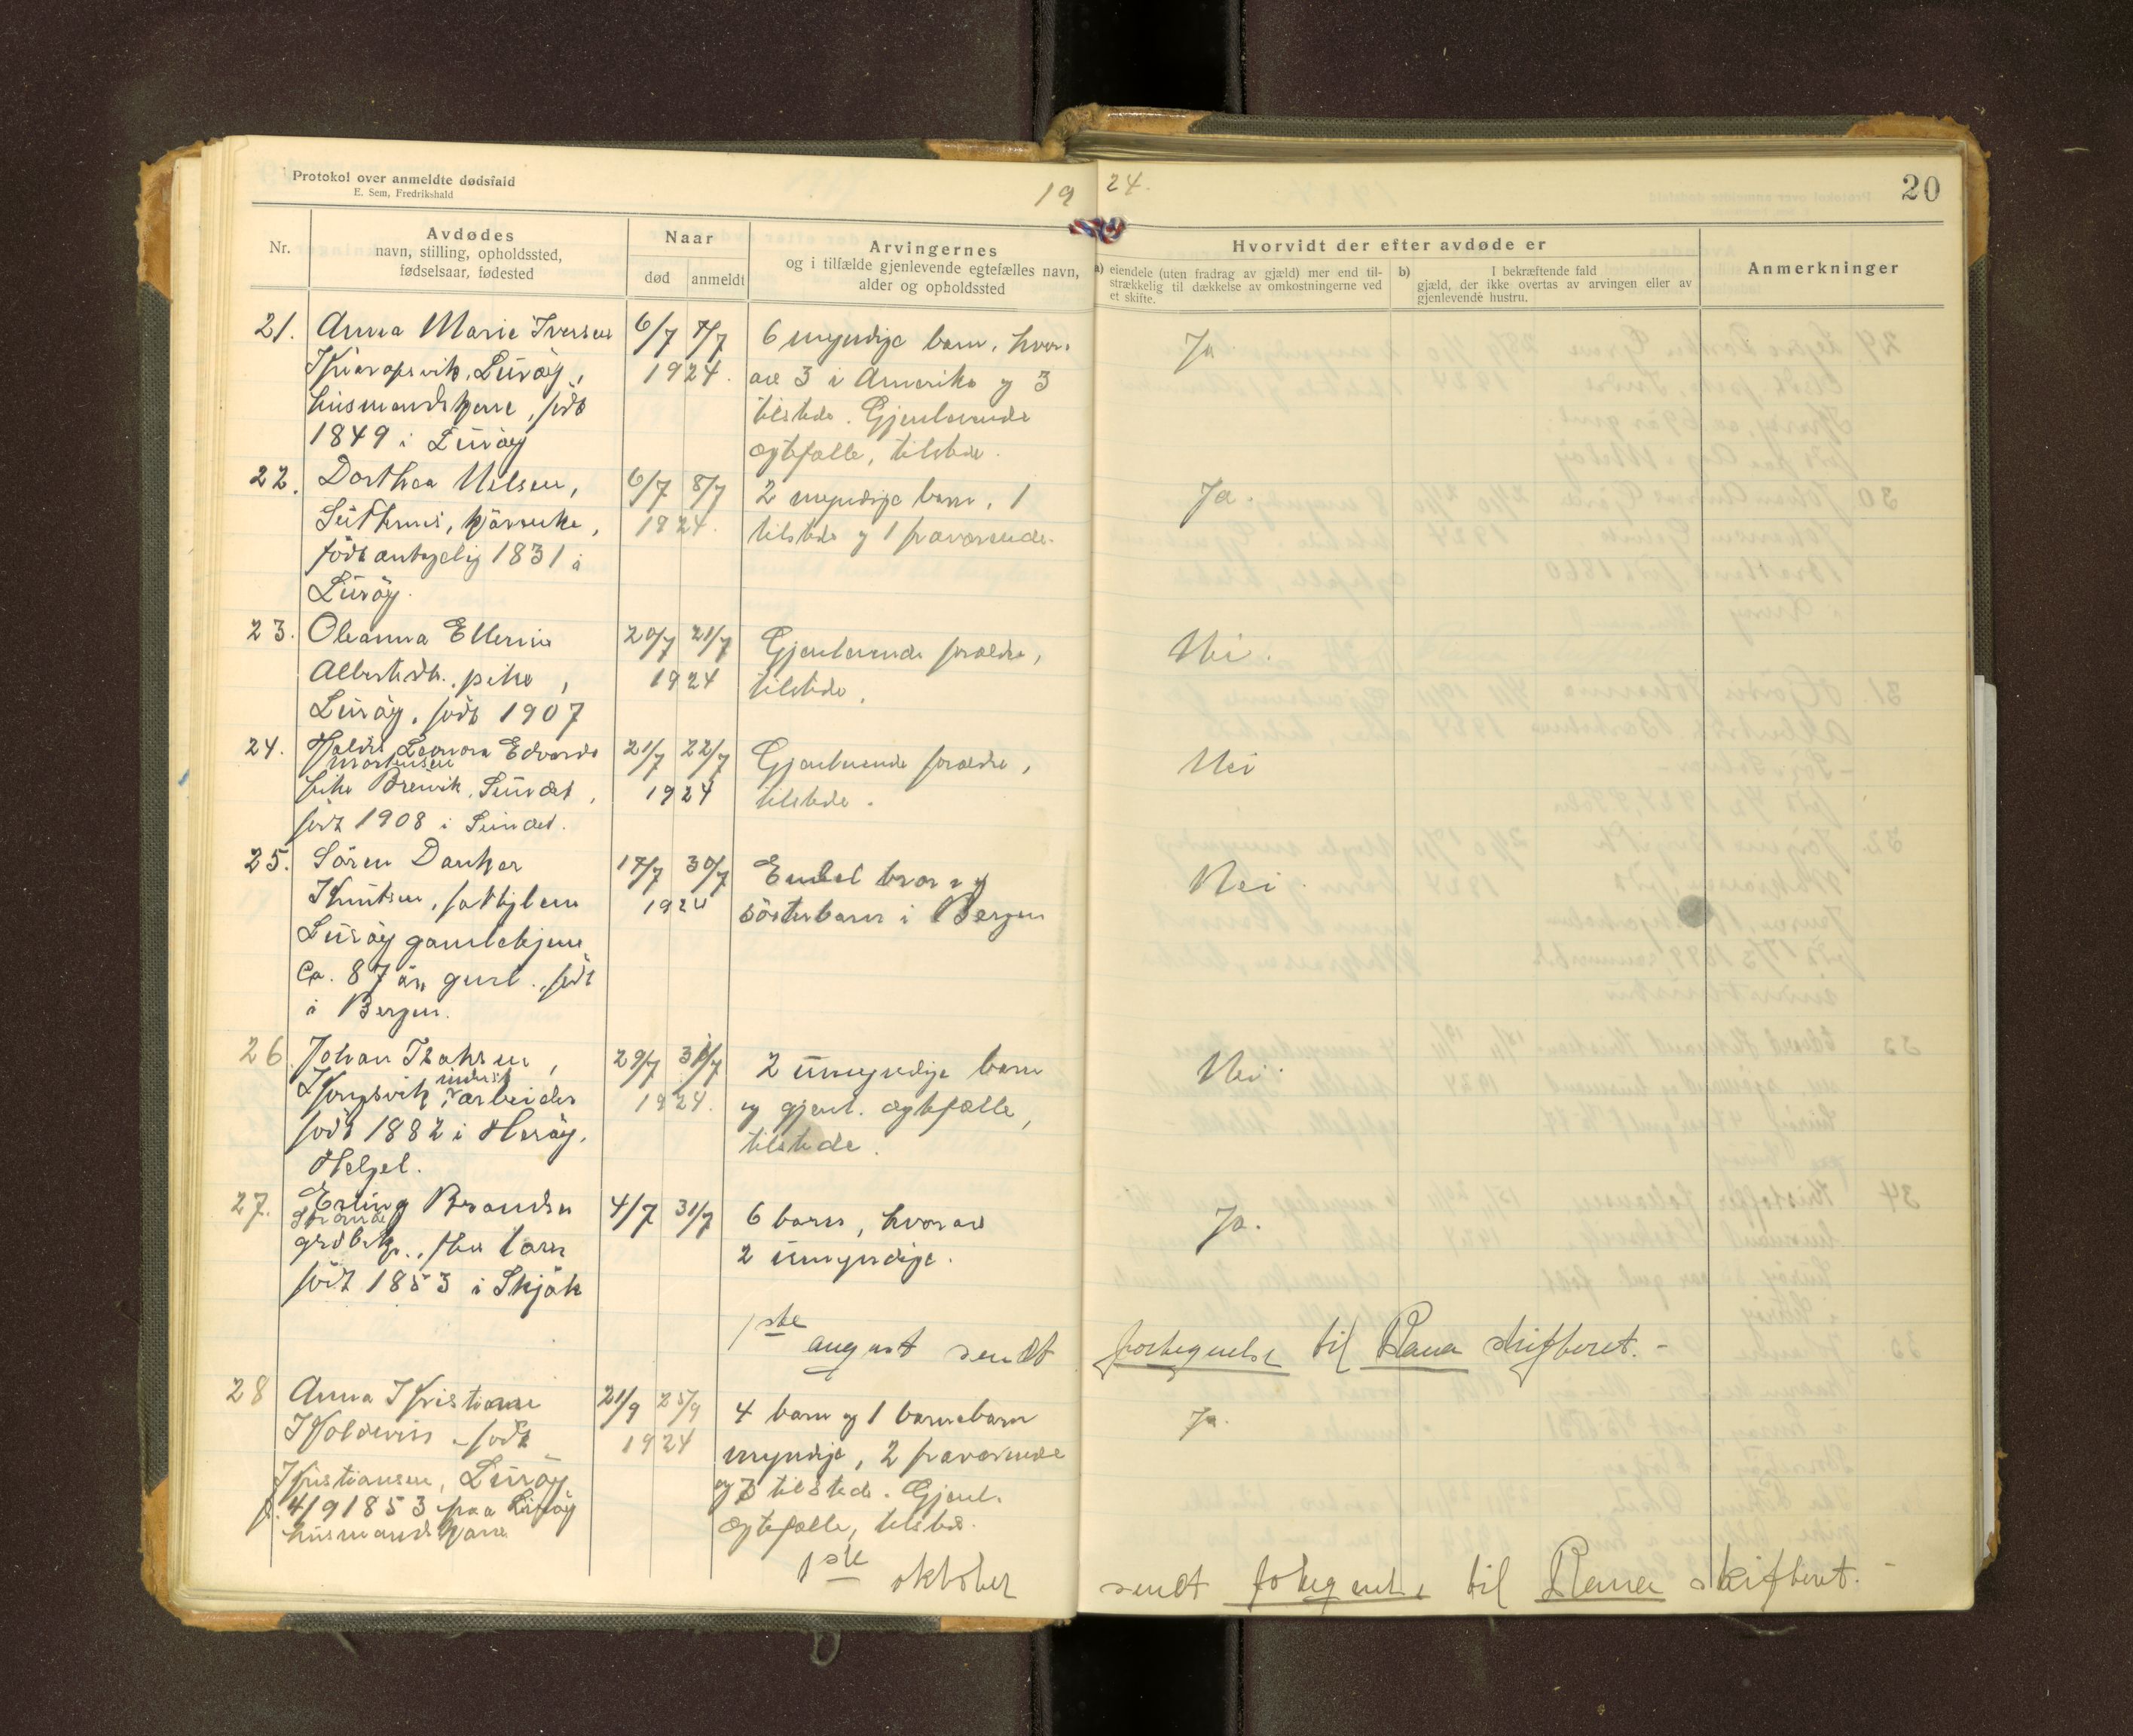 Protokol over anmeldte dødsfald
E. Sem, Fredrikshald
19 24.
20
Nr.
Avdødes
navn, stilling, opholdssted,
fødselsaar, fødested
Naar
død
anmeldt
Arvingernes
og i tilfælde gjenlevende egtefælles navn,
alder og opholdssted
Hvorvidt der efter avdøde er
a) eiendele (uten fradrag av gjæld) mer end til-
strækkelig til dækkelse av omkostningerne ved
et skifte.
b) I bekræftende fald
gjæld, der ikke overtas av arvingen eller av
gjenlevende hustru.
Anmerkninger
21. Anna Marie Iversen 6/7 7/7 6 myndige barn, hvor- Ja
Lüröy, 1924. av 3 i Amerika og 3
husmandskone, født tilstede. Gjenlevende
1849 i Lüröy egtefælle, tilstede.
22. Dorthea Nilsen, 6/7 8/7 2 myndige barn, 1 Ja.
kjærring, 1924. tilstede og 1 fraværende.
født antagelig 1831 i
Lüröy.
23. Oleanna Ellerine 20/7 21/7 Gjenlevende forældre, Nei.
Albertsdtr. pike, 1924 tilstede.
Lüröy, født 1907
24. Leonora Edvarda 21/7 22/7 Gjenlevende forældre, Nei
Mortensen
pike Breivik, Sundet, 1924 tilstede.
født 1908 i Sundet.
25. Sören Danker 17/7 30/7 Enkel bror og Nei.
Knutsen, fattiglem 1924 sösterbarn i Bergen
Lüröy gamlehjem
Ca. 87 år gml., født
i Bergen.
26. Johan Isaksen, 29/7 31/7 2 umyndige barn Nei.
Kongsvik, arbeider 1924. og gjenl. egtefælle,
født 1882 i Heröy, tilstede.
Helgel.
27. Erling Brandsn 4/7 31/7 6 barn, hvorav Ja.
Strand
grdbrk. 2 umyndige.
født 1853 i Skjåk
1ste august sendt fortegnelse til Rana skifteret.-
28 Anna Kristiane 21/9 25/9 4 barn og 1 barnebarn Ja.
Koldevin født 1924 myndige, 2 fraværende
Kristiansen, Lüröy og 3 tilstede. Gjenl.
f. 4/9 1853 paa Lüröy egtefælle, tilstede.
husmandskone
1ste oktober sendt fortegnelse til Rana skifteret.-